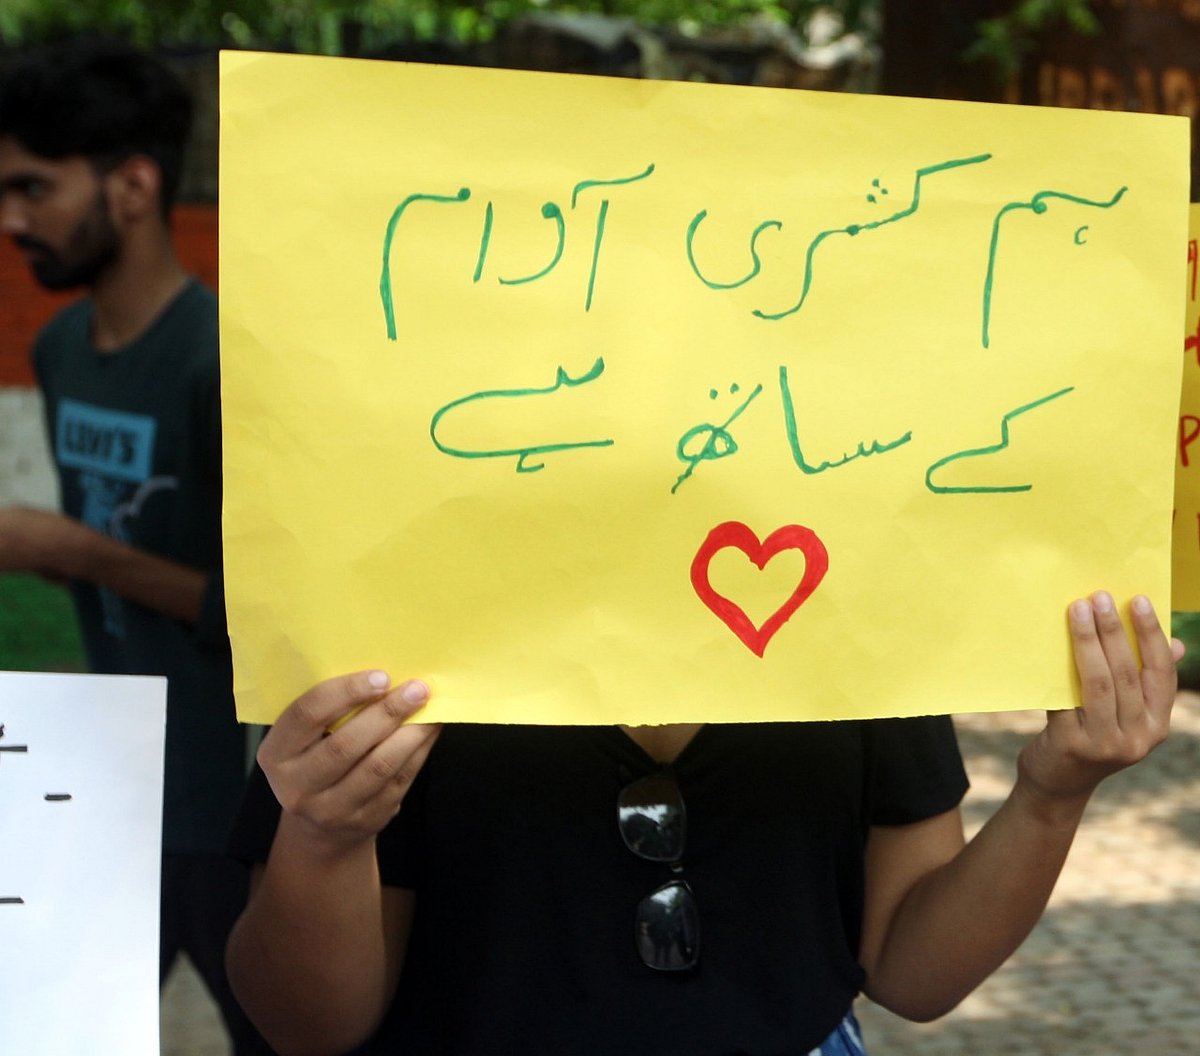 ہم کشمری آوام
کے ساتھ ہے
LEVI'S